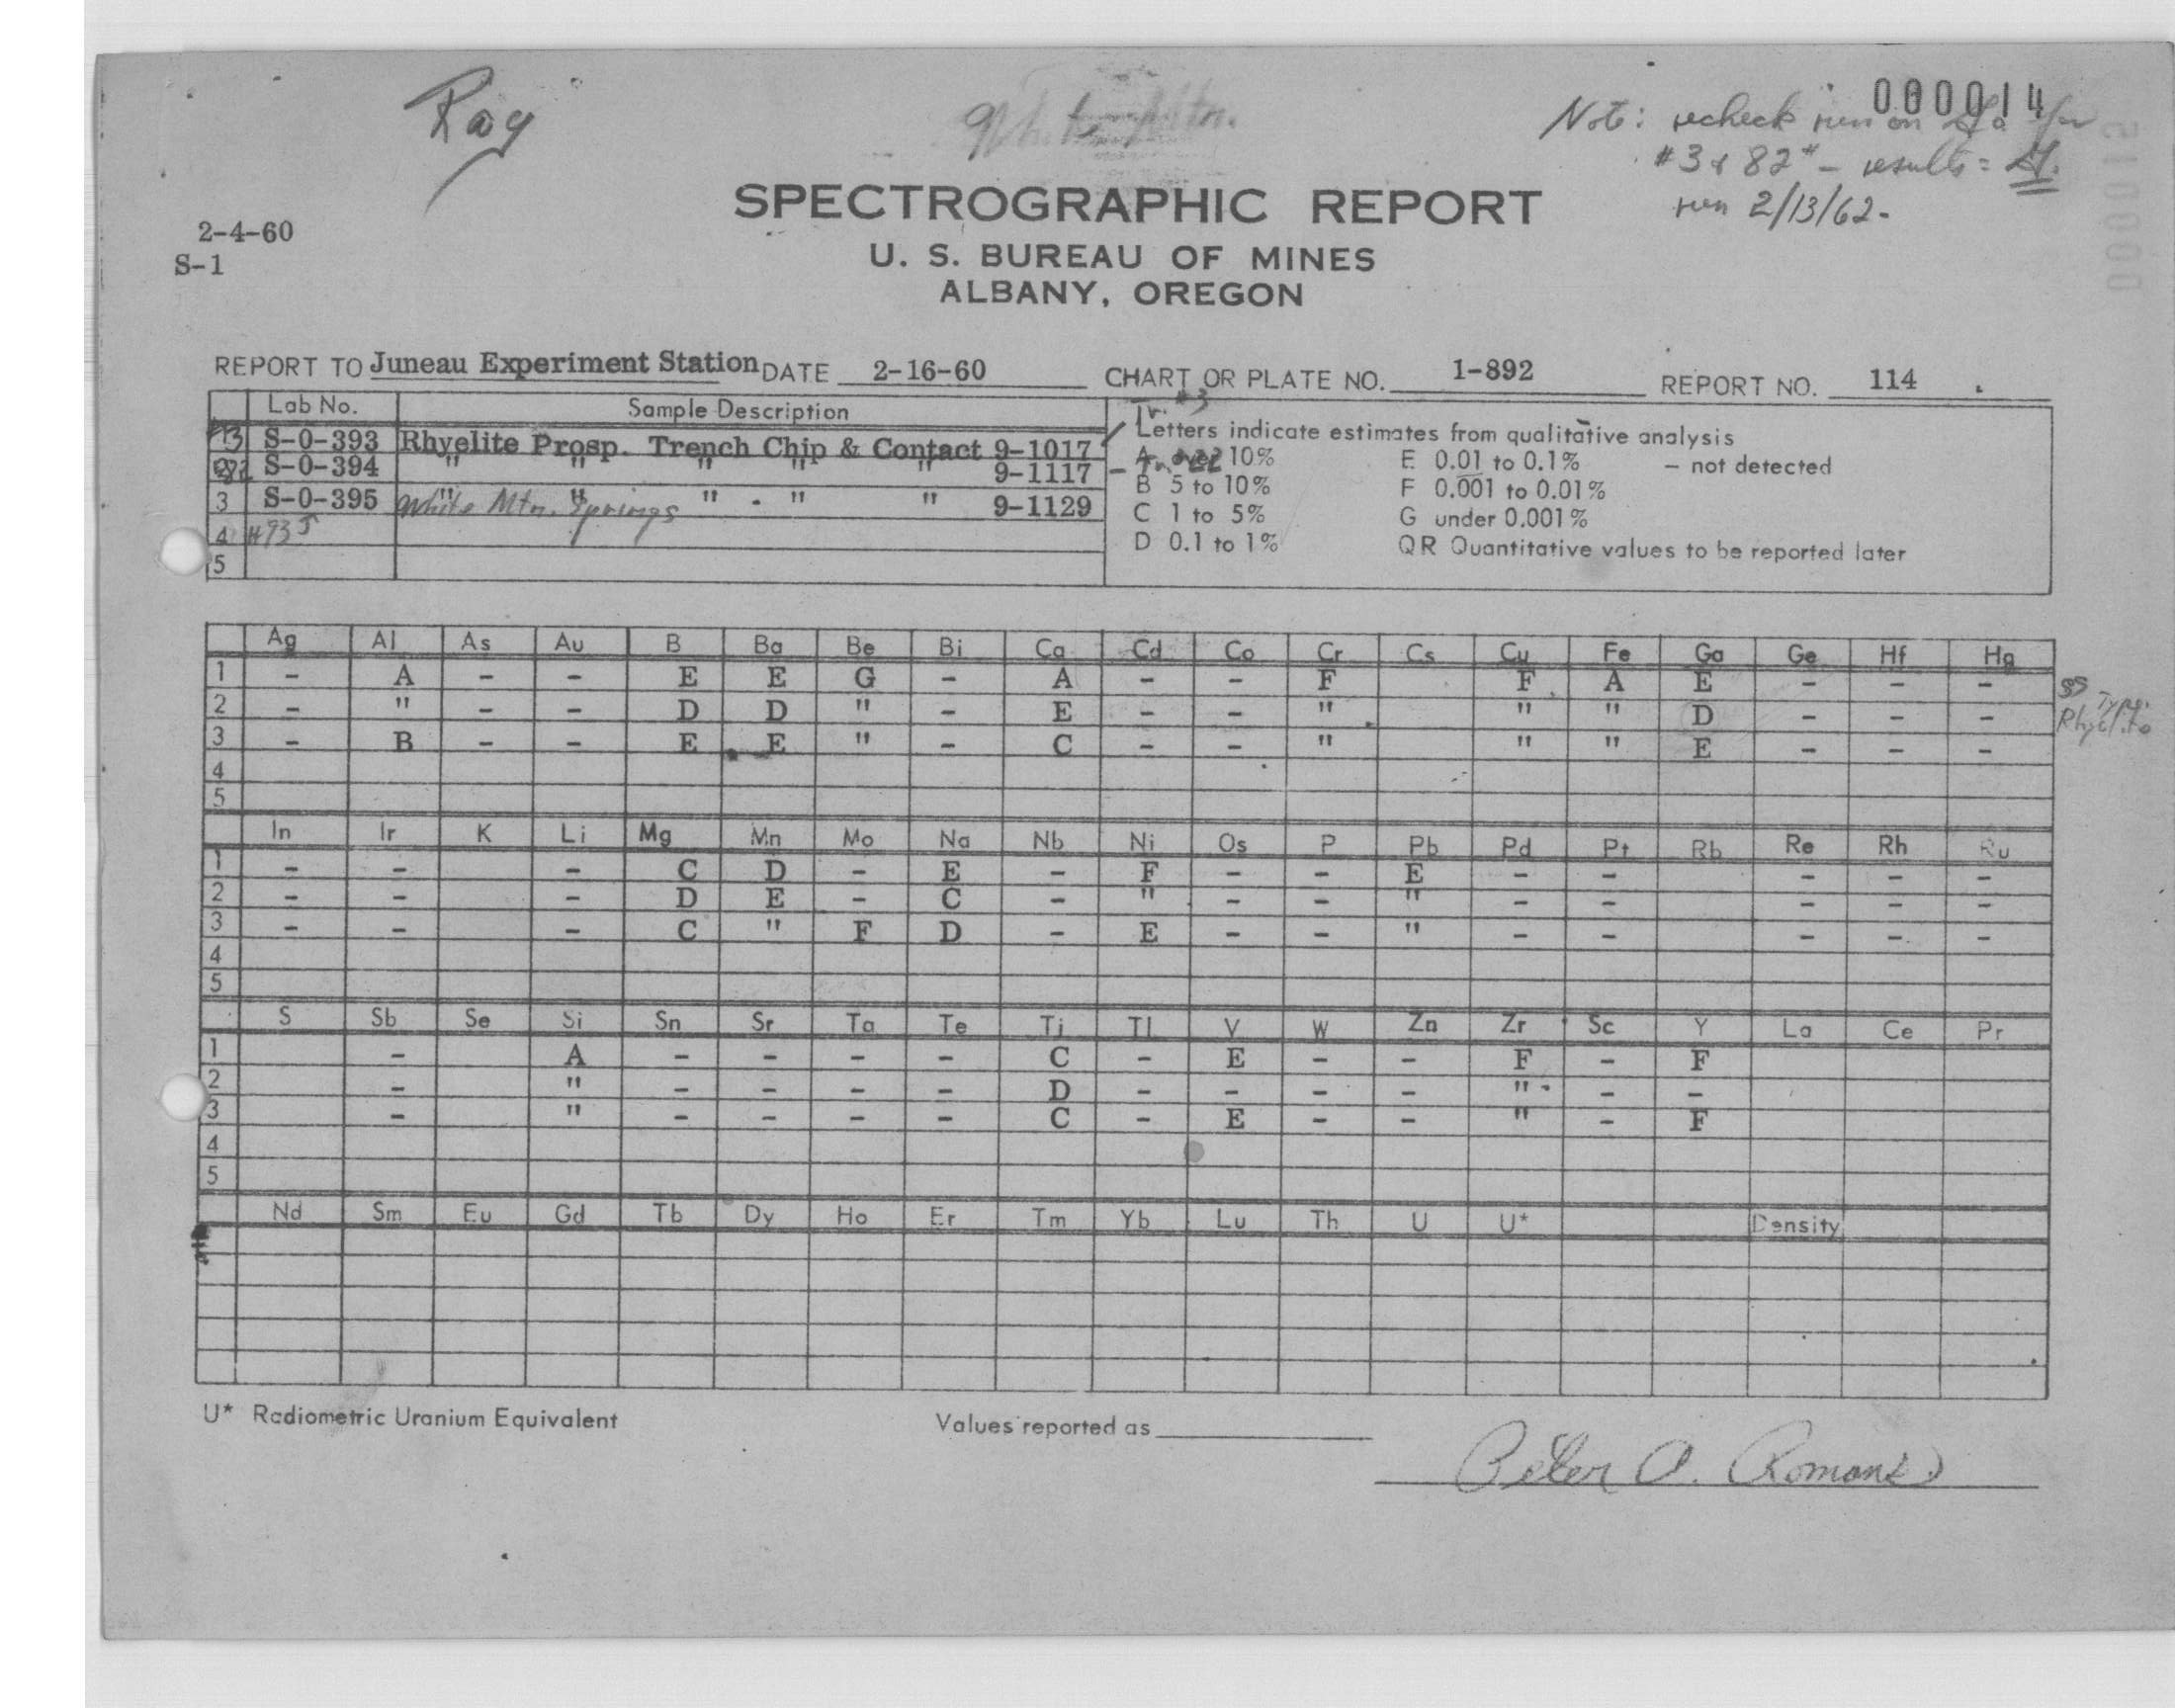 Ray
White Mtn.
000014
Note: recheck run on Ga for
#3 & 82* - results =
run 2/13/62-
000012
SPECTROGRAPHIC REPORT
U. S. BUREAU OF MINES
ALBANY, OREGON
2-4-60
S-1
REPORT TO Juneau Experiment Station DATE 2-16-60 CHART OR PLATE NO. 1-892 REPORT NO. 114
Lab No. Sample Description
S-0-393 Rhyelite Prosp. Trench Chip & Contact 9-1017
82 S-0-394 " " " " " 9-1117
3 S-0-395 " " " - " " 9-1129
White Mtn. Springs
4 #93
5
Tr. #3
Letters indicate estimates from qualitative analysis
A over 10% E 0.01 to 0.1% - not detected
B 5 to 10% F 0.001 to 0.01%
C 1 to 5% G under 0.001%
D 0.1 to 1% QR Quantitative values to be reported later
Ag Al As Au B Ba Be Bi Ca Cd Co Cr Cs Cu Fe Ga Ge Hf Hg
1 - A - - E E G - A - - F F A E - - -
2 - " - - D D " - E - - " " " D - - -
3 - B - - E E " - C - - " " " E - - -
4
5
Rhyelite
In Ir K Li Mg Mn Mo Na Nb Ni Os P Pb Pd Pt Rb Re Rh Ru
1 - - - C D - E - F - - E - - - - -
2 - - - D E - C - " - - " - - - - -
3 - - - C " F D - E - - " - - - - -
4
5
S Sb Se Si Sn Sr Ta Te Ti Tl V W Zn Zr Sc Y La Ce Pr
1 - A - - - - C - E - - F - F
2 - " - - - - D - - - - " - -
3 - " - - - - C - E - - " - F
4
5
Nd Sm Eu Gd Tb Dy Ho Er Tm Yb Lu Th U U* Density
U* Radiometric Uranium Equivalent
Values reported as
Peter A. Romans